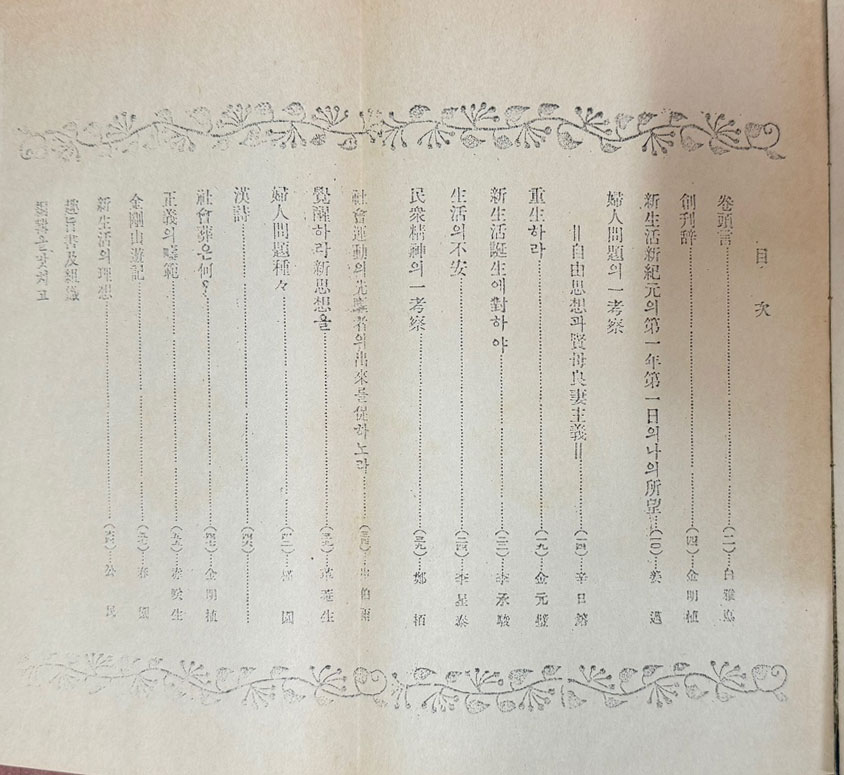 目次
卷頭言……(二)…白雅悳
創刊辭……(四)…金明植
新生活新紀元의第一年第一日의나의所望…(一〇)…姜邁
婦人問題의一考察
=自由思想과賢母良妻主義=……(一四)…辛日鎔
重生하라……(一九)…金元璧
新生活誕生에對하야……(二二)…李承駿
生活의不安……(二四)…李星泰
民衆精神의一考察……(二九)…鄭栢
社會運動의先驅者의出來를促하노라……(三四)…申伯雨
覺醒하라新思想을……(三九)…生
婦人問題種々……(四二)…園
漢詩……(四六)
社會葬은何?……(四七)…金明植
正義의……赤咲生
金剛山遊記……春園
新生活의理想……公民
趣旨書及組織